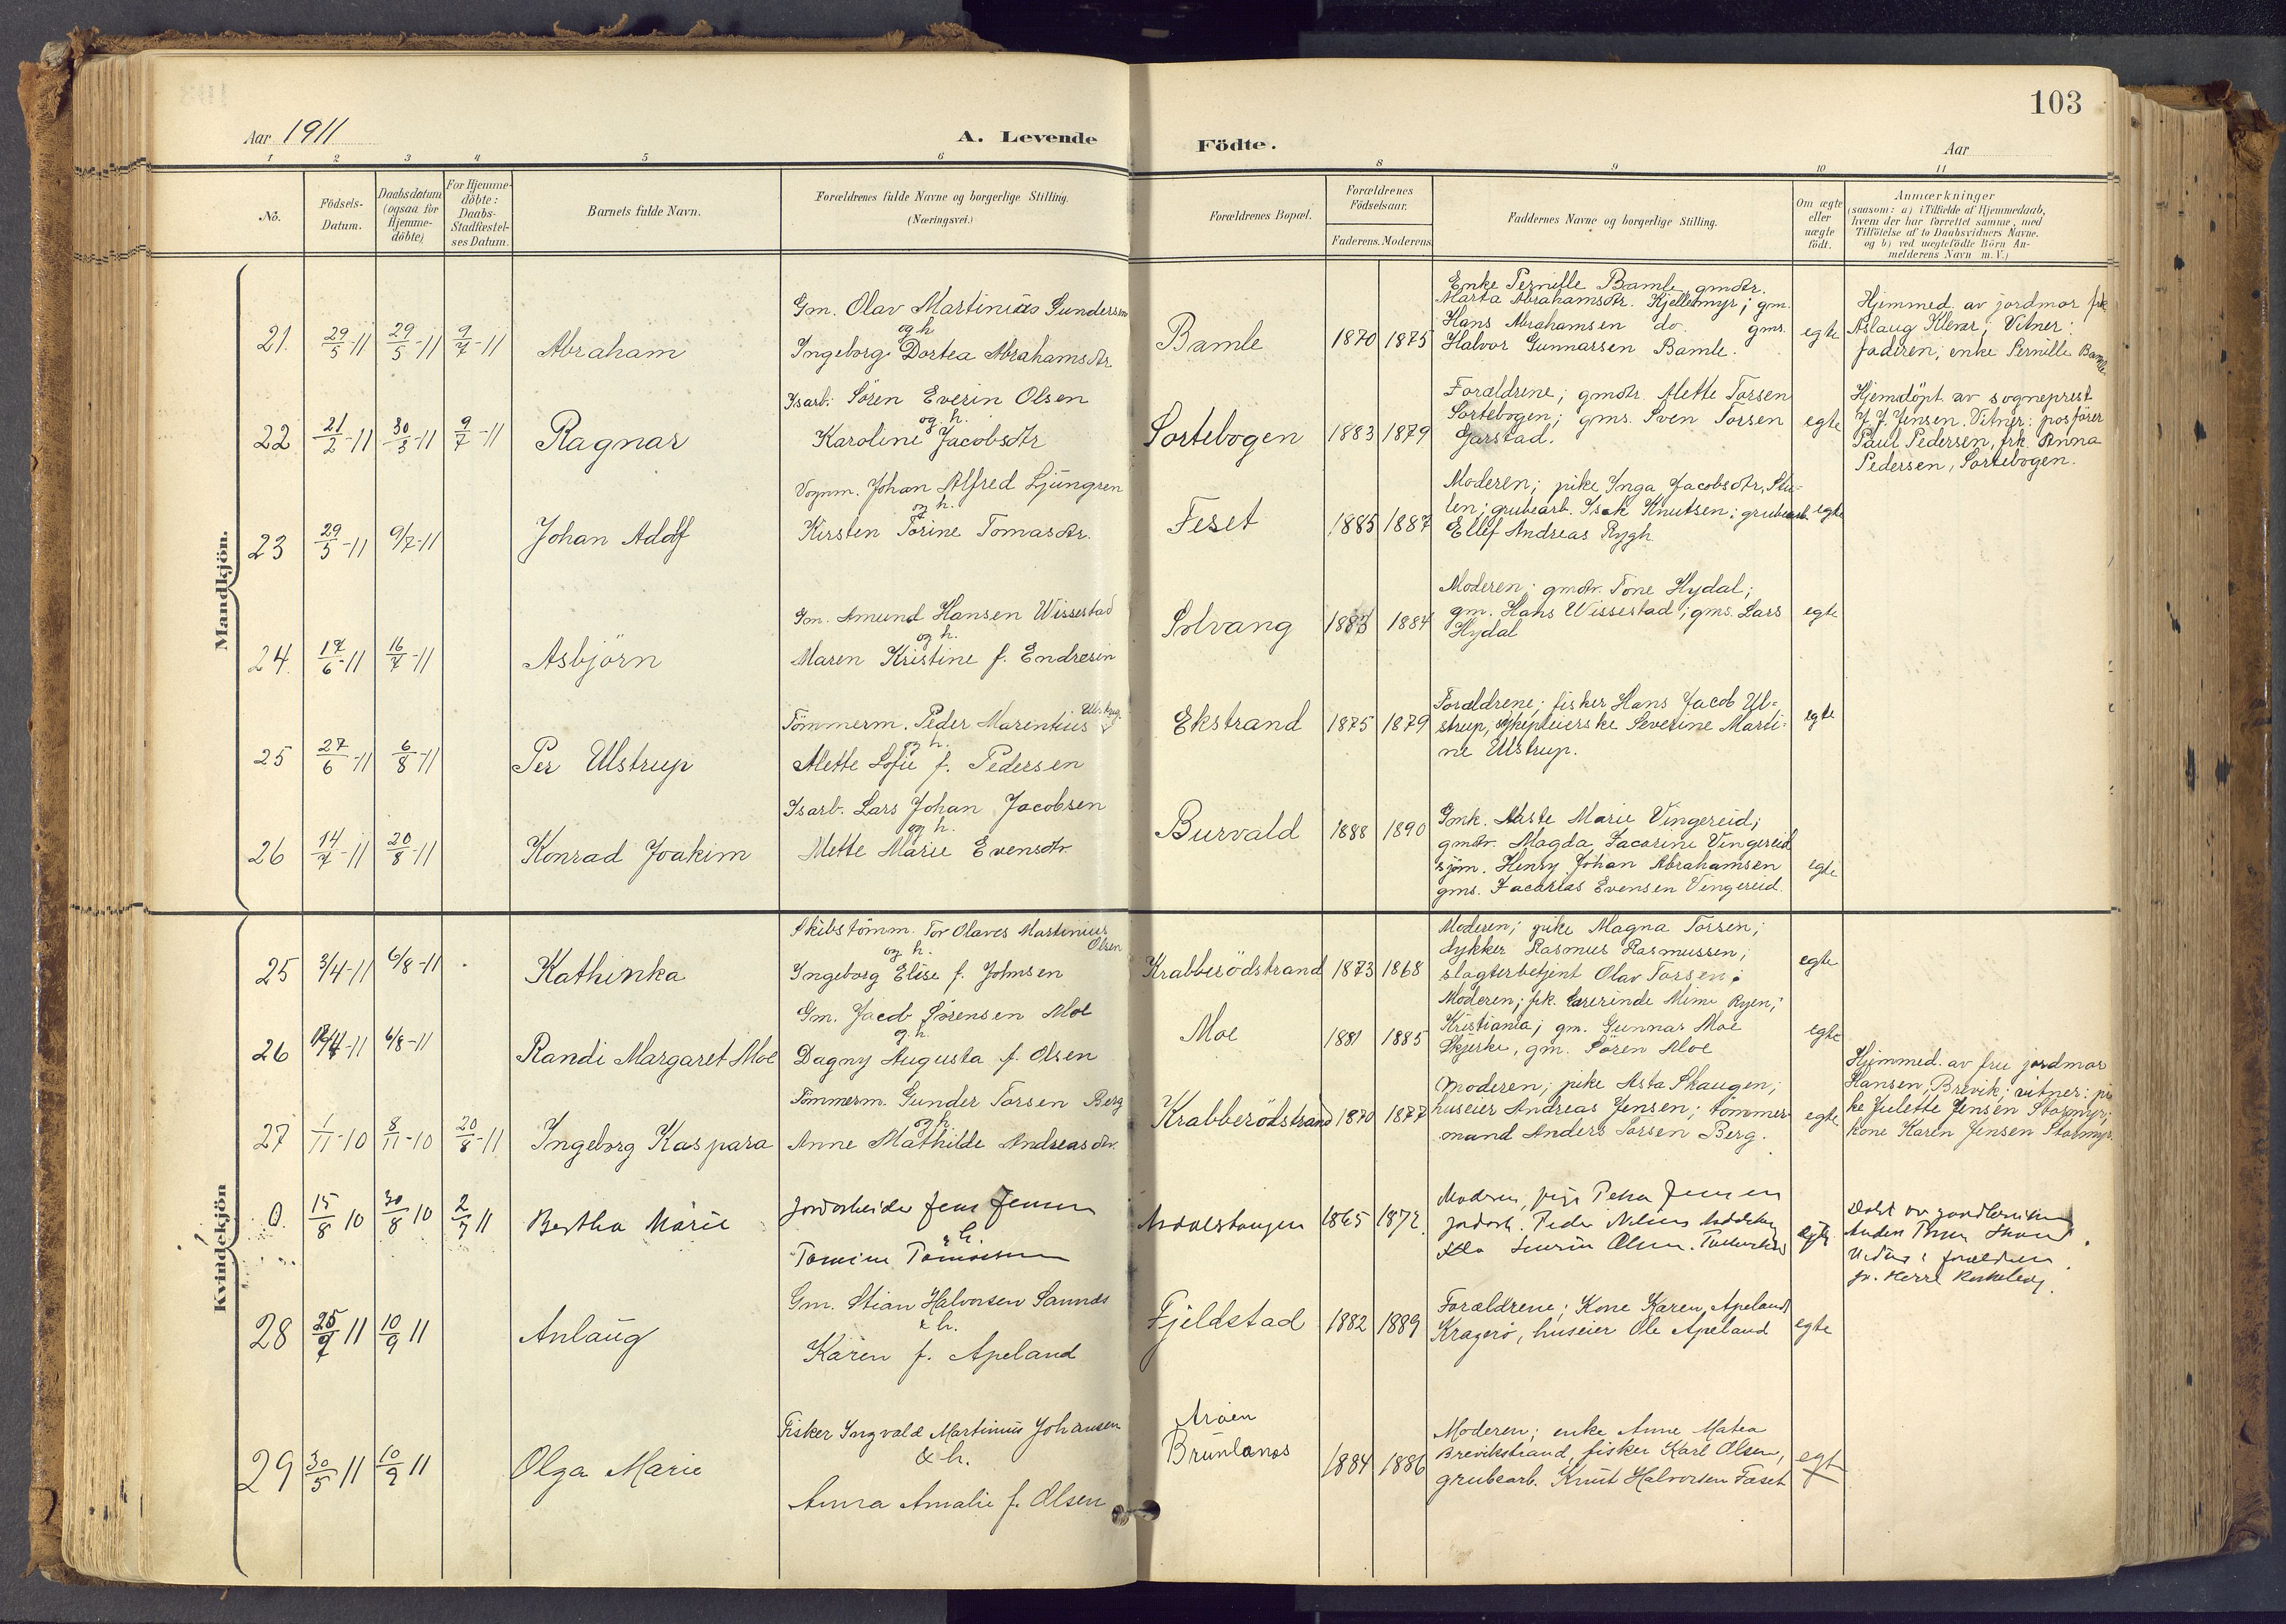 103
Aar 1911
A. Levende
Födte.
Aar
1 2 3 4 5 6 8 9 10 11
No.
Födsels-
Datum.
Daabsdatum
(ogsaa for
Hjemme-
döbte)
For Hjemme-
döbte:
Daabs-
Stadfæstel-
ses Datum.
Barnets fulde Navn.
Forældrenes fulde Navne og borgerlige Stilling.
(Næringsvei.)
Forældrenes Bopæl.
Forældrenes
Födselsaar.
Faderens. Moderens.
Faddernes Navne og borgerlige Stilling.
Om ægte
eller
uægte
födt.
Anmærkninger
(saasom: a) i Tilfælde af Hjemmedaab,
hvem der har forrettet samme, med
Tilföielse af to Daabsvidners Navne.
og b) ved uægtefödte Börn An-
melderens Navn m. V.)
Mandkjön.
21. 29/5-11 29/5-11 9/7-11 Abraham
Gm. Olav Martinius Gundersen
og h
Ingeborg Dortea Abrahamsdtr
Bamle 1870 1875
Enke Pernille Bamle, gmdtr.
Marta Abrahamsdtr. Kjellemyr; gm.
Hans Abrahamsen do. gms.
Halvor Gunnarsen Bamle.
egte
Hjemmed. av jordmor frk
Aslaug Klever; Vitner:
faderen, enke Pernille Bamle
22 21/2-11 30/3-11 9/7-11 Ragnar
Isarb. Sören Everin Olsen
og h.
Karoline Jacobsdtr
Sortebogen 1883 1879
Forældrene; gmdtr. Alette Torsen
Sortebogen; gms. Sven Torsen
Garstad.
egte
Hjemdöpt av sogneprest
J. J. Jensen. Vitner: postförer
Paul Pedersen, frk. Anna
Pedersen, Sortebogen.
23 29/5-11 9/7-11 Johan Adolf
Vognm. Johan Alfred Ljungren
og h.
Kirsten Torine Tomasdtr.
Feset 1885 1887
Moderen; pike Inga Jacobsdtr, Stu-
len; grubearb. Isak Knutsen; grubearb.
Ellef Andreas Rygh
egte
24. 17/6-11 16/7-11 Asbjörn
Gm. Amund Hansen Wissestad
og h.
Maren Kristine f. Endresen
Solvang 1883 1884
Moderen; gmdtr. Tone Hydal;
gm. Hans Wissestad; gms. Lars
Hydal
egte
25 27/6-11 6/8-11 Per Ulstrup
Tömmerm. Peder Marentius Ulstrup
og h.
Alette Sofie f. Pedersen
Ekstrand 1875 1879
Forældrene; fisker Hans Jacob Ul-
strup, sykepleierske Severine Marti-
ne Ulstrup.
egte
26 14/7-11 20/8-11 Konrad Joakim
Isarb. Lars Johan Jacobsen
og h.
Mette Marie Evensdtr.
Burvald 1888 1890
Gmk. Aaste Marie Vingereid;
gmdtr. Magda Zacarine Vingereid
sjöm. Henry Johan Abrahamsen
gms. Zacarias Evensen Vingereid.
egte
Kvindekjön
25 3/4-11 6/8-11 Kathinka
Skibstömm. Tor Olaves Martinius
Olsen
og h.
Ingeborg Elise f. Johnsen
Krabberödstrand 1873 1868
Moderen; pike Magna Torsen;
dykker Rasmus Rasmussen;
slagterbetjent Olav Torsen;
egte
26 6/8-11 Randi Margaret Moe
Gm. Jacob Sörensen Moe
og h.
Dagny Augusta f. Olsen
Moe 1881 1885
Moderen; frk. lærerinde Mimi Ryen;
Kristiania; gm. Gunnar Moe
Skjerke, gm. Sören Moe
egte
27 1/11-10 8/11-10 20/8-11 Ingeborg Kaspara
Tömmerm. Gunder Torsen Berg
og h.
Anne Mathilde Andreasdtr.
Krabberödstrand 1870 1877
Moderen; pike Asta Skaugen;
huseier Andreas Jensen; tömmer-
mand Anders Torsen Berg.
egte
Hjemmed. av fru jordmor
Hansen, Brevik; vitner: pi
ke Julette Jensen Stormyr;
kone Karen Jensen Stormyr.
0. 15/8 10 30/8 10 2/9 11 Bertha Marie
Jordarbeider Jens Jensen
& h.
1865 1872.
Moderen, pige Petra Jensen
jordarb. Peder Nilsen
Olsen.
egte
28 25/7 11 10/9 11 Anlaug
Gm. Stian Halvorsen Sannes
& h.
Karen f. Apeland
Fjeldstad 1882 1889
Forældrene; Kone Karen Apeland
Kragerö, huseier Ole Apeland
egte
29 30/5 11 10/9 11 Olga Marie
Fisker Ingvald Martinius Johansen
& h.
Anna Amalie f. Olsen
Aröen
Brunlanes
1884 1886
Moderen; enke Anne Matea
Brevikstrand, fisker Karl Olsen,
grubearb. Knut Halvorsen Faset
egt